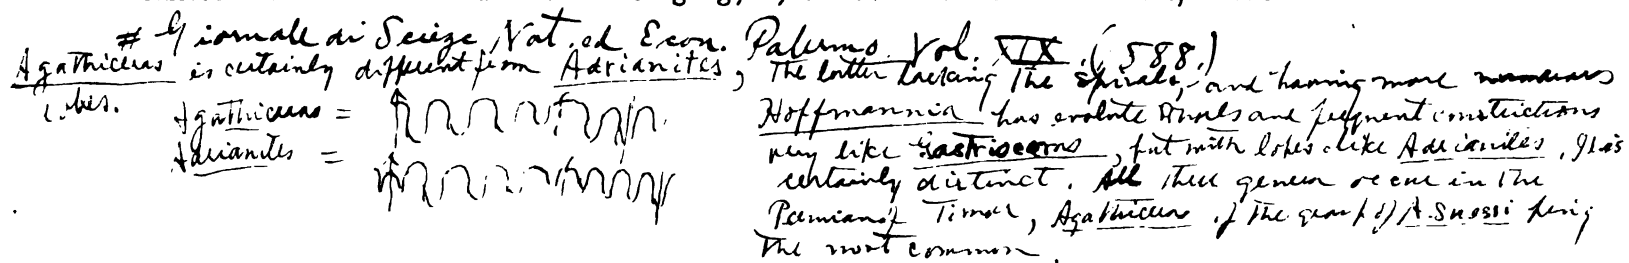 # Giornale di Scienze Nat. ed Econ. Palermo Vol. XIX (588.)
Agathiceras is certainly different from Adrianites, the latter lacking the spirals, and having more numerous
lobes.
Agathiceras =
Adrianites =
Hoffmannia has evolute whorls and frequent constrictions
very like Gastrioceras, but with lobes like Adrianites. It is
certainly distinct. All these genera occur in the
Permian of Timor, Agathiceras of the group of A. Suessi being
the most common.